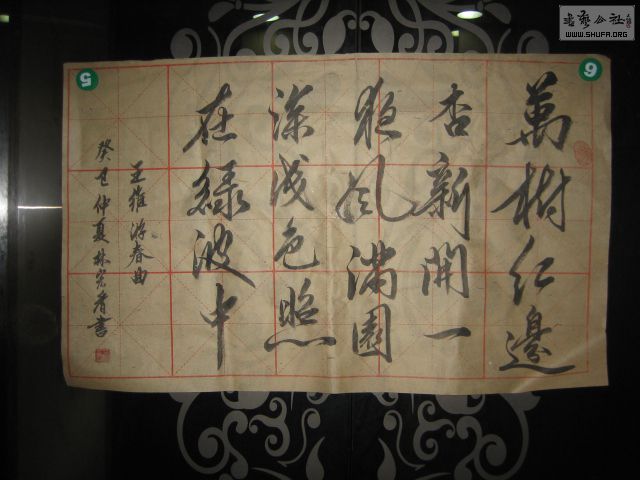 萬樹江邊
杏新開一
夜風滿園
深淺色照
在綠波中
王維游春曲
癸巳仲夏林書
5
6
書藝公社
WWW.SHUFA.ORG